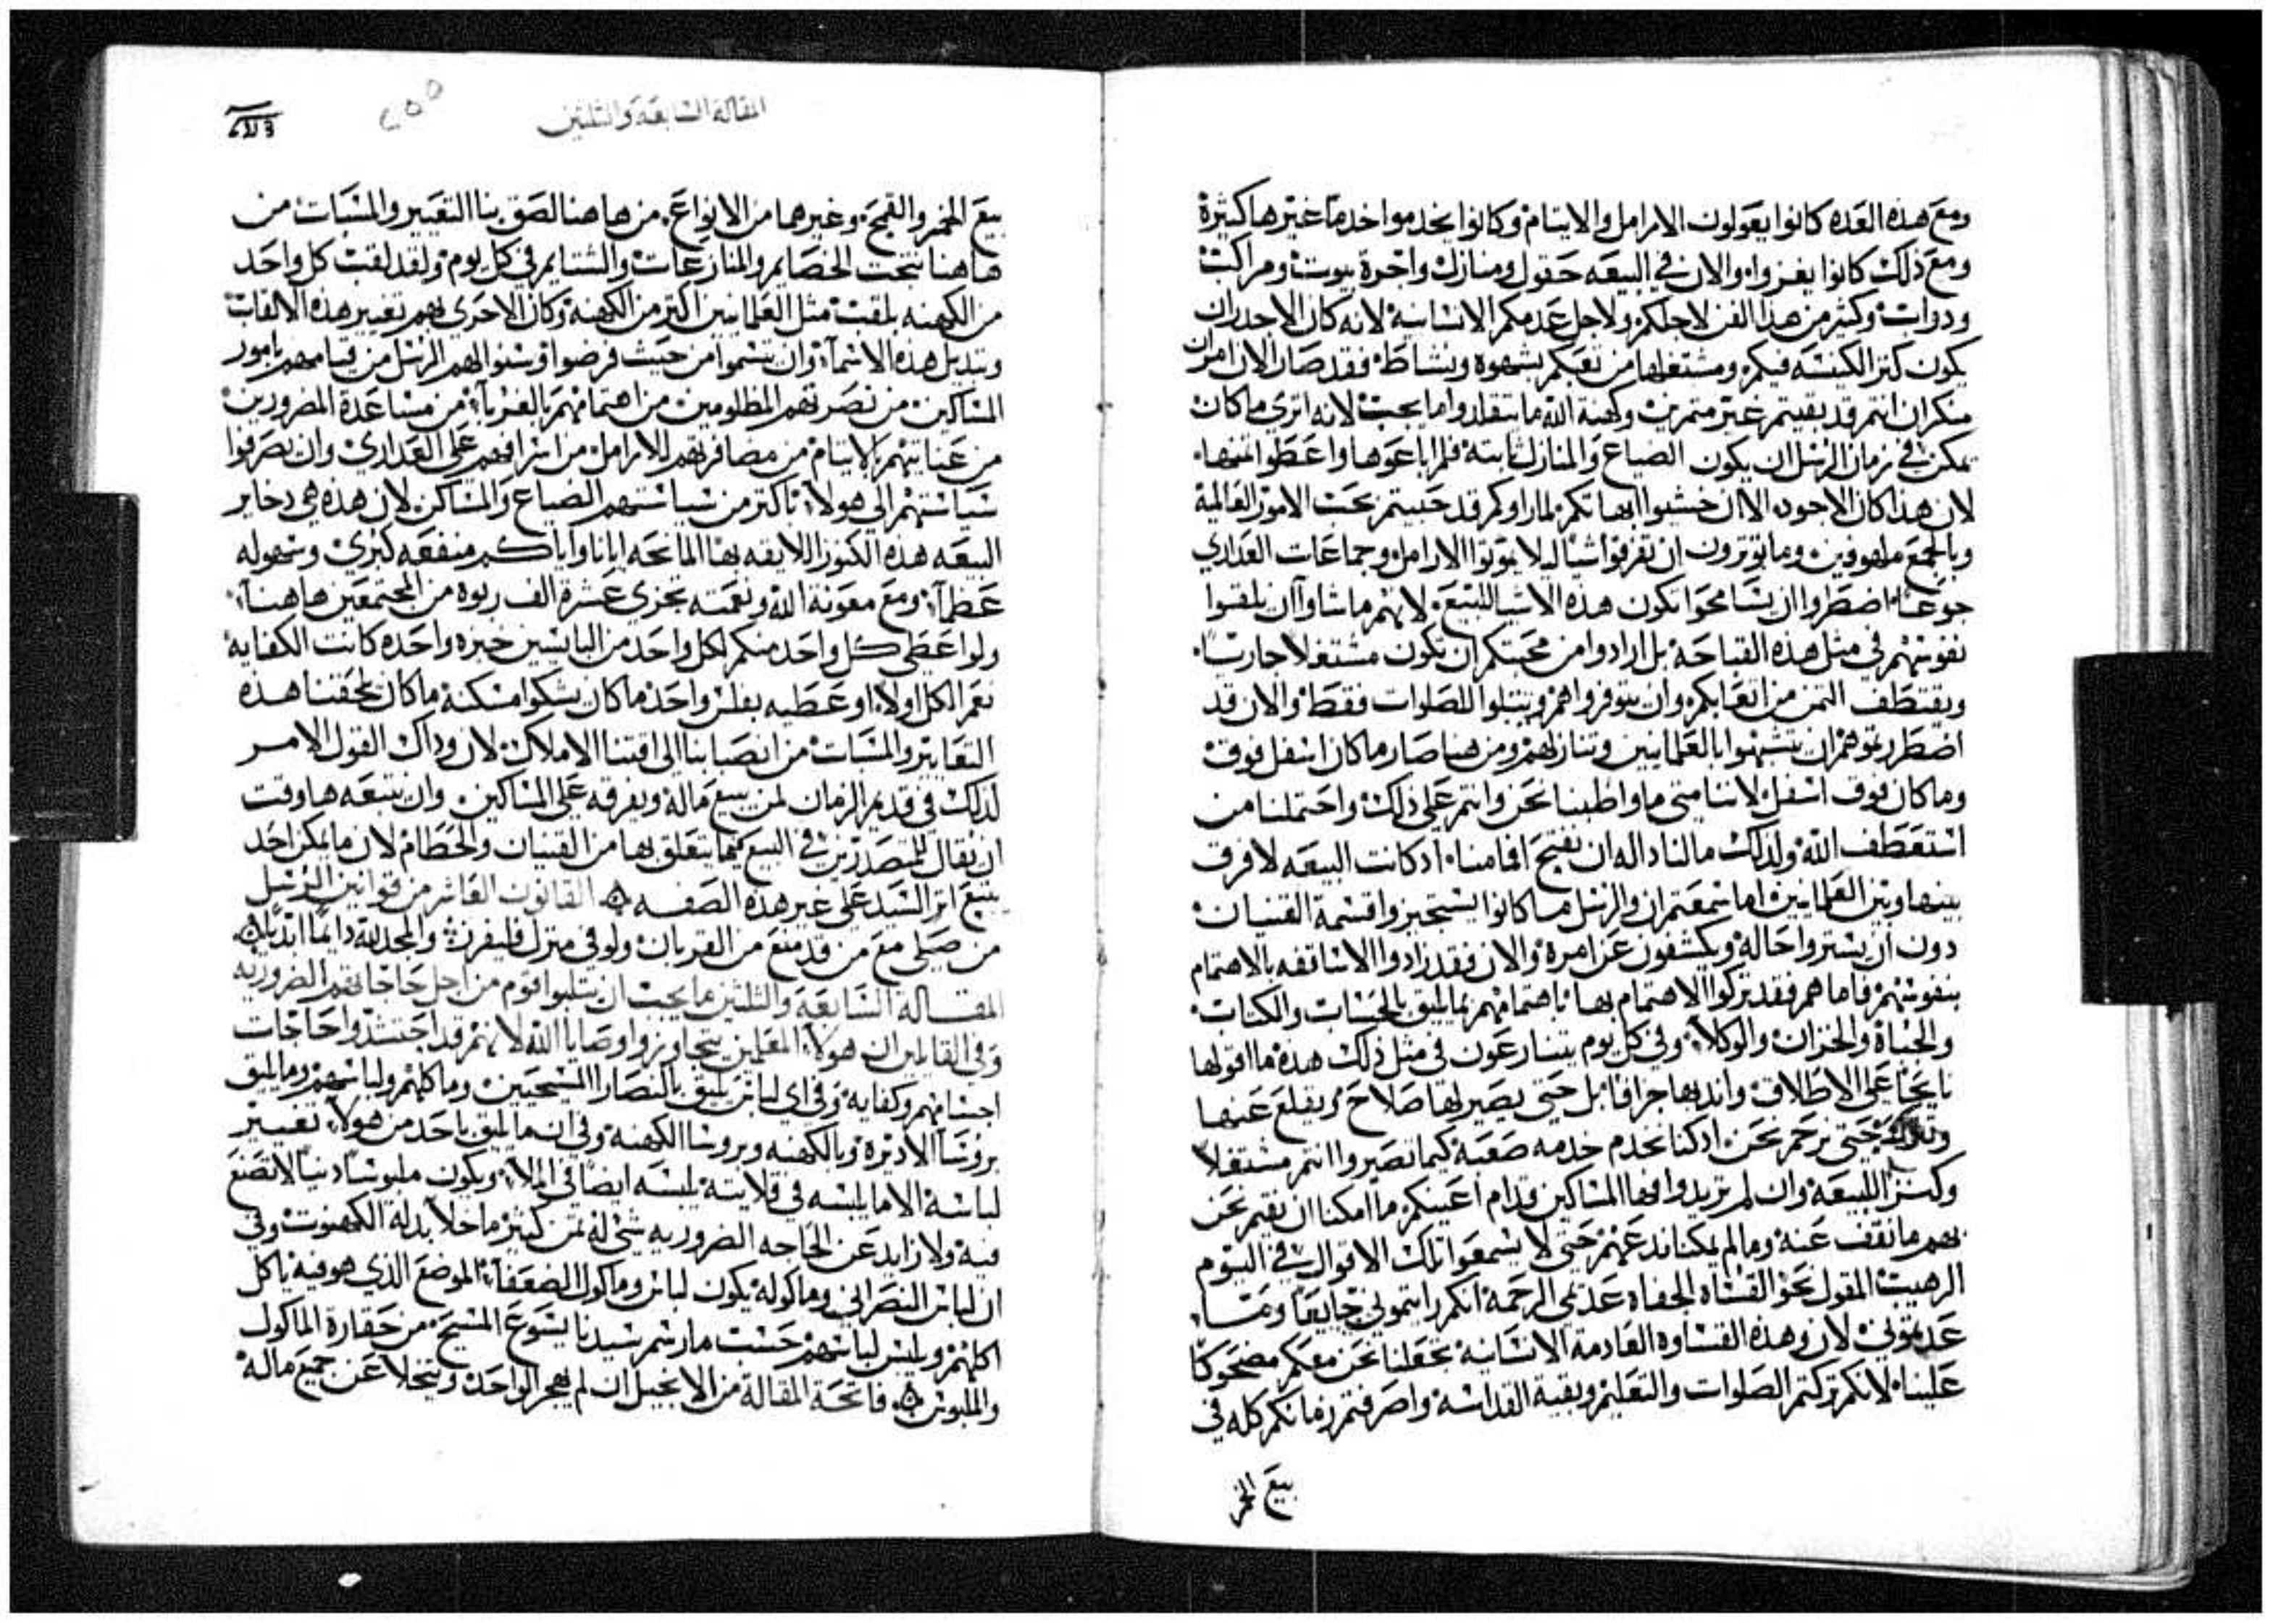 ومع هذه العده كانوا يعولون الارامل والايتام وكانوا يخدموا خدمًا غيرها كثيرة
ومع ذلك كانوا يفرواه والان في البيعه حقول ومنازل واجرة بيوت ومراكب
ودواب وكثير من هذا الفن لاجلكم ولاجل عدمكم الانسانية لانه كان الاجدران
يكون كنز الكنيسه فيكم ومشتغلها من تعبكم بشهوه ونشاط فقد صار الان امران
منكران انتم قد بقيتم غير متمرين وكهنة الله ما يتقلدوا ما يجب لانه اترى ما كان
يمكن في زمان الرسل ان يكون الضياع والمنازل ثابته فلم اباعوها واعطوا ثمنها
لان هذا كان الاجود الا ان خشيوا ابهاتكم لما راوكم قد حبيتم تحب الامور العالمية
وبالجمع ملهوفين وما توترون ان تفرقوا شيًا ليلا يموتوا الارامل وجماعات العداري
جوعًا اضطروا ان يسامحوا بكون هذه الاشيا للبيع لانهم ما شاوا ان يلقوا
نفوسهم في مثل هذه القباحه بل ارادوا من محبتكم ان تكون مشتغلا جاريًا
ويقتطف الثمن من اتعابكم وان يتوفروا هم ويبتلوا للصلوات فقط والان قد
اضطررتموهم ان يتشبهوا بالعلمانيين وتنازلهم ومن هنا صار ما كان اسفل فوق
وما كان فوق اسفل لاننا متي ما واظبنا نحن وانتم على ذلك واحتملنا من
استعطف الله ولذلك ما لنا داله ان نفتح افامنا اد كانت البيعه لا فرق
بينها وبين العلمانيين اما سمعتم ان والرسل ما كانوا يستجيزوا قسمة القنيان
دون ان يستروا حاله ويكشفون عن امره والان فقد زادوا الاساقفه بالاهتمام
بنفوسهم فاما هم فقد تركوا الاهتمام بها باهتمامهم بما يليق بالحسبات والكتاب
والجباة والخزان والوكلا وفي كل يوم يتسارعون في مثل ذلك هذه ما اقولها
نايحًا على الاطلاق واندبها جزافا بل حتى يصير لها صلاح ويقلع عنها
حتي نرحم نحن اد كنا نخدم خدمه صعبه كيما تصيروا انتم مشتغلا
وكنزا للبيعه وان لم تريدوا فها المساكين قدام اعينكم ما امكنا ان نقيم نحن
بهم ما نقف عنه وما لم يمكنا ندعهم حتى لا يسمعوا تلك الاقوال في اليوم
الرهيب المقول نحو القساه الجفاه عديمي الرحمة انكم رايتموني جايعًا وما
عديموني لان وهذه القساوه العادمة الانسانيه تجعلنا نحن معكم مضحوكًا
علينا لانكم تركتم الصلوات والتعليم وبقية القداسه واصرفتم زمانكم كله في
بيع الخمر
المقالة السابعة والثلثين
٢٥٥
بيع الخمر والقمح وغيرهما من الانواع من هاهنا لصق بنا التعيير والمسبات من
هاهنا تنتحت الخصايم والمنازعات والشتايم في كل يوم ولقد لقبت كل واحد
من الكهنه بلقب مثل العلمانيين اكتر من الكهنه وكان الاحرى بهم تغيير هذه الالقاب
وتبديل هذه الاسمآ وان يتسموا من حيث فرضوا وسنوا لهم الرسل من قيامهم بامور
المساكين من نصرتهم المظلومين من اهتمامهم بالغربآ من مساعدة المضرورين
من عنايتهم بالايتام من مضافرتهم للارامل من اشرافهم على العداري وان يصرفوا
سياستهم الى هولا باكتر من سياستهم الضياع والمساكن لان هذه هي دخاير
البيعه هذه الكنوز اللايقه بها المانحه ايانا واياكم منفعه كبري وسهوله
عظمآ ومع معونة الله ونعمته تجزي عشرة الف ربوه من المجتمعين هاهنا
ولو اعطي كل واحد منكم لكل واحد من البايسين خبزه واحده كانت الكفايه
تعم الكل اولا او عطيه بفلس واحد ما كان يشكوا مسكنه ما كان لحقتنا هذه
التعايير والمسبات من انصبابنا الى اقتنا الاملاك لان وداك القول الامر
لذلك في قديم الزمان لمن يبيع ماله ويفرقه على المساكين وان يتبعه ها وقت
ان يقال للمتصدرين في البيع كيما يتعلق بها من القنيان والحطام لان ما يمكن احد
يتبع اثر السيد على غير هذه الصفه القانون العاشر من قوانين الرسل
من صلي مع من قد منع من القربان ولو في منزل فليفرز والمجد لله دايمًا ابديًا
المقالة السابعه والثلثين ما يجب ان يتلبوا قوم من اجل حاجاتهم الضروريه
وفي القايلين ان هولا المعلمين يتجاوزوا وصايا الله لانهم قد احتشدوا حاجات
اجسامهم وكفايه وفي اي لباس يليق بالنصارا المسيحيين وماكلهم ولباسهم وما يليق
بروسآ الاديره وبالكهنه وبروسا الكهنه وفي انه ما يليق باحد من هولآ تغيير
لباسه الا ما يلبسه في قلايته يلبسه ايضًا في الملا ويكون ملبوسًا دنيًا لا تصنع
فيه ولا زايد عن الحاجه الضروريه شي له ثمن كثير ما خلا بدلة الكهنوت وفي
ان لباس النصراني وماكوله يكون لباس وماكول الضعفآ الموضع الذي هو فيه ياكل
اكلهم ويلبس لباسهم حسب ما رسم سيدنا يسوع المسيح من حقارة الماكول
والملبوس فاتحة المقالة من الانجيل ان لم يهجر الواحد ويتخلا عن جميع ماله